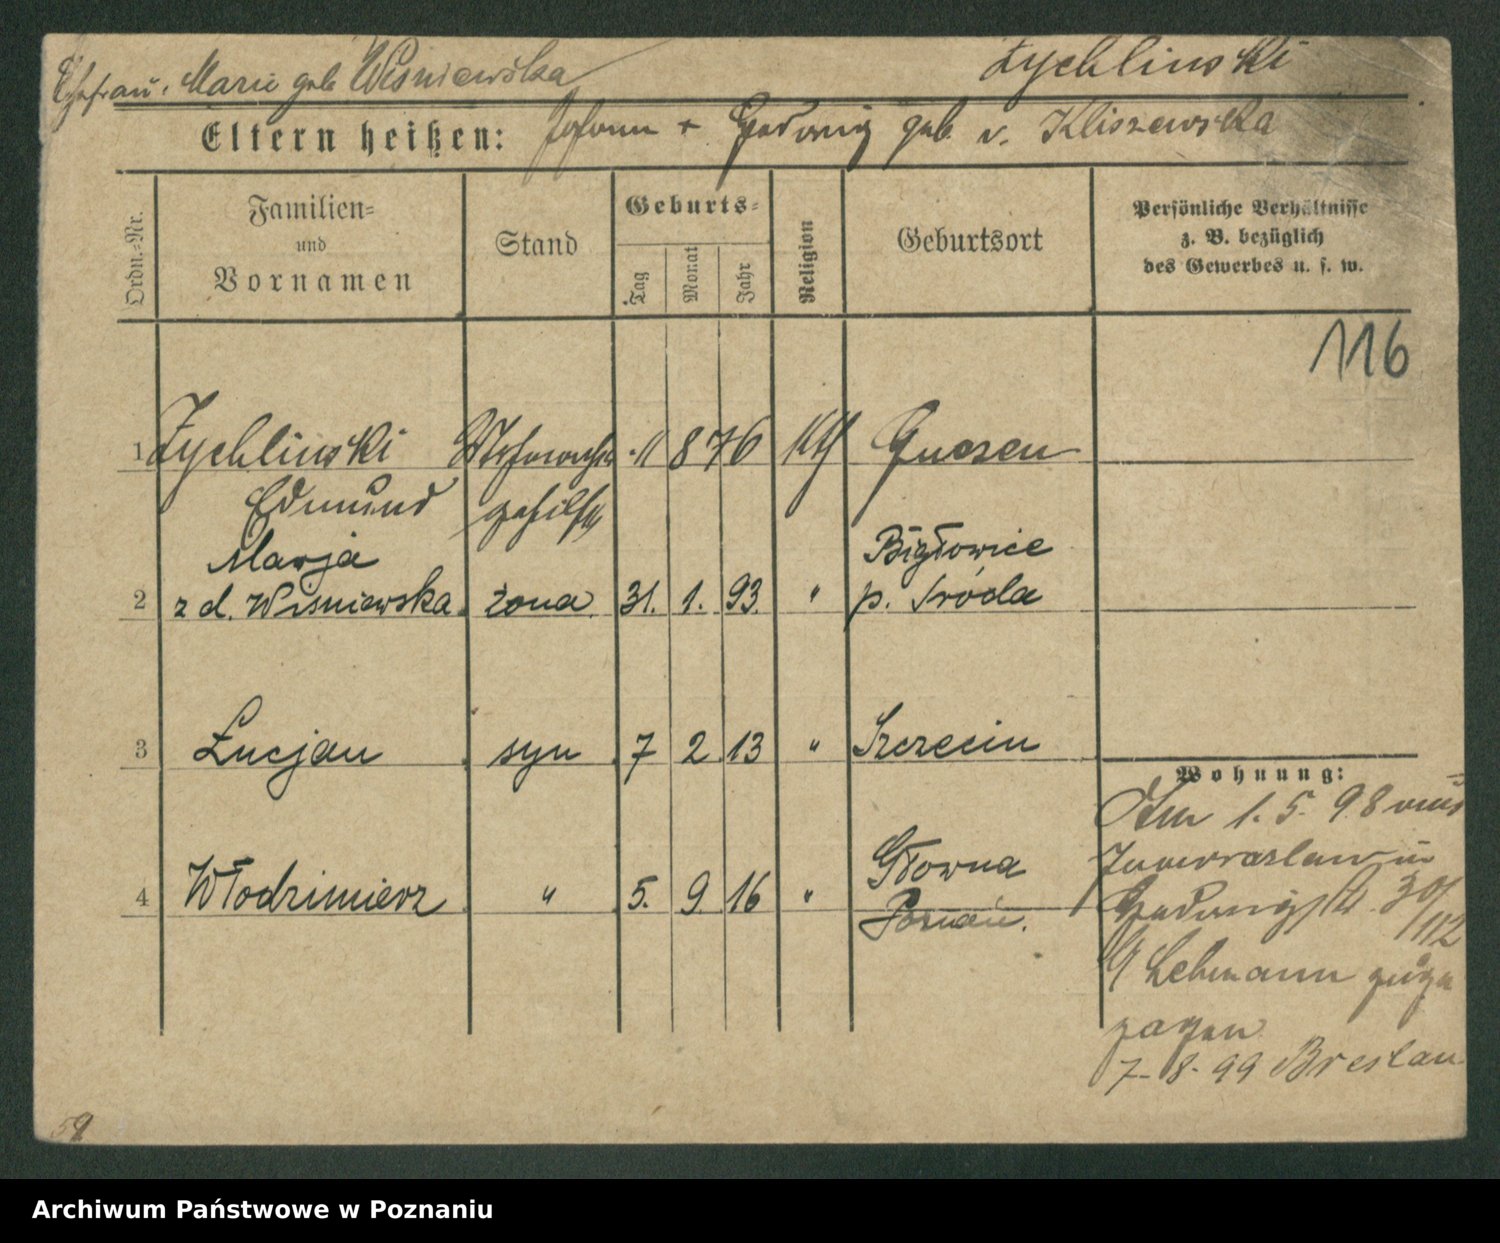 Ehefrau. Marie geb Wiśniewska
Zychlinski
Eltern heißen: Johann + Hedwig geb. v. Kliszewska
Ordn.-Nr.
Familien-
und
Vornamen
Stand
Geburts-
Tag
Monat
Jahr
Religion
Geburtsort
Persönliche Verhältnisse
z. B. bezüglich
des Gewerbes u. s. w.
116
1 Zychlinski 11 8 76 Kth Gnesen
Edmund gehilfe
Marja Bigłowice
2 z d. Wiśniewska żona 31. 1. 93. " p. Środa
3 Lucjan syn 7 2 13 " Szczecin
Wohnung:
Am 1. 5. 98 aus
Inowrazlaw in
Główna
4 Włodzimierz " 5. 9. 16 "
Poznań.
Hedwigstr. 30/
112
Lehmann zuge
zogen
7-8-99 Breslau
59
Archiwum Państwowe w Poznaniu